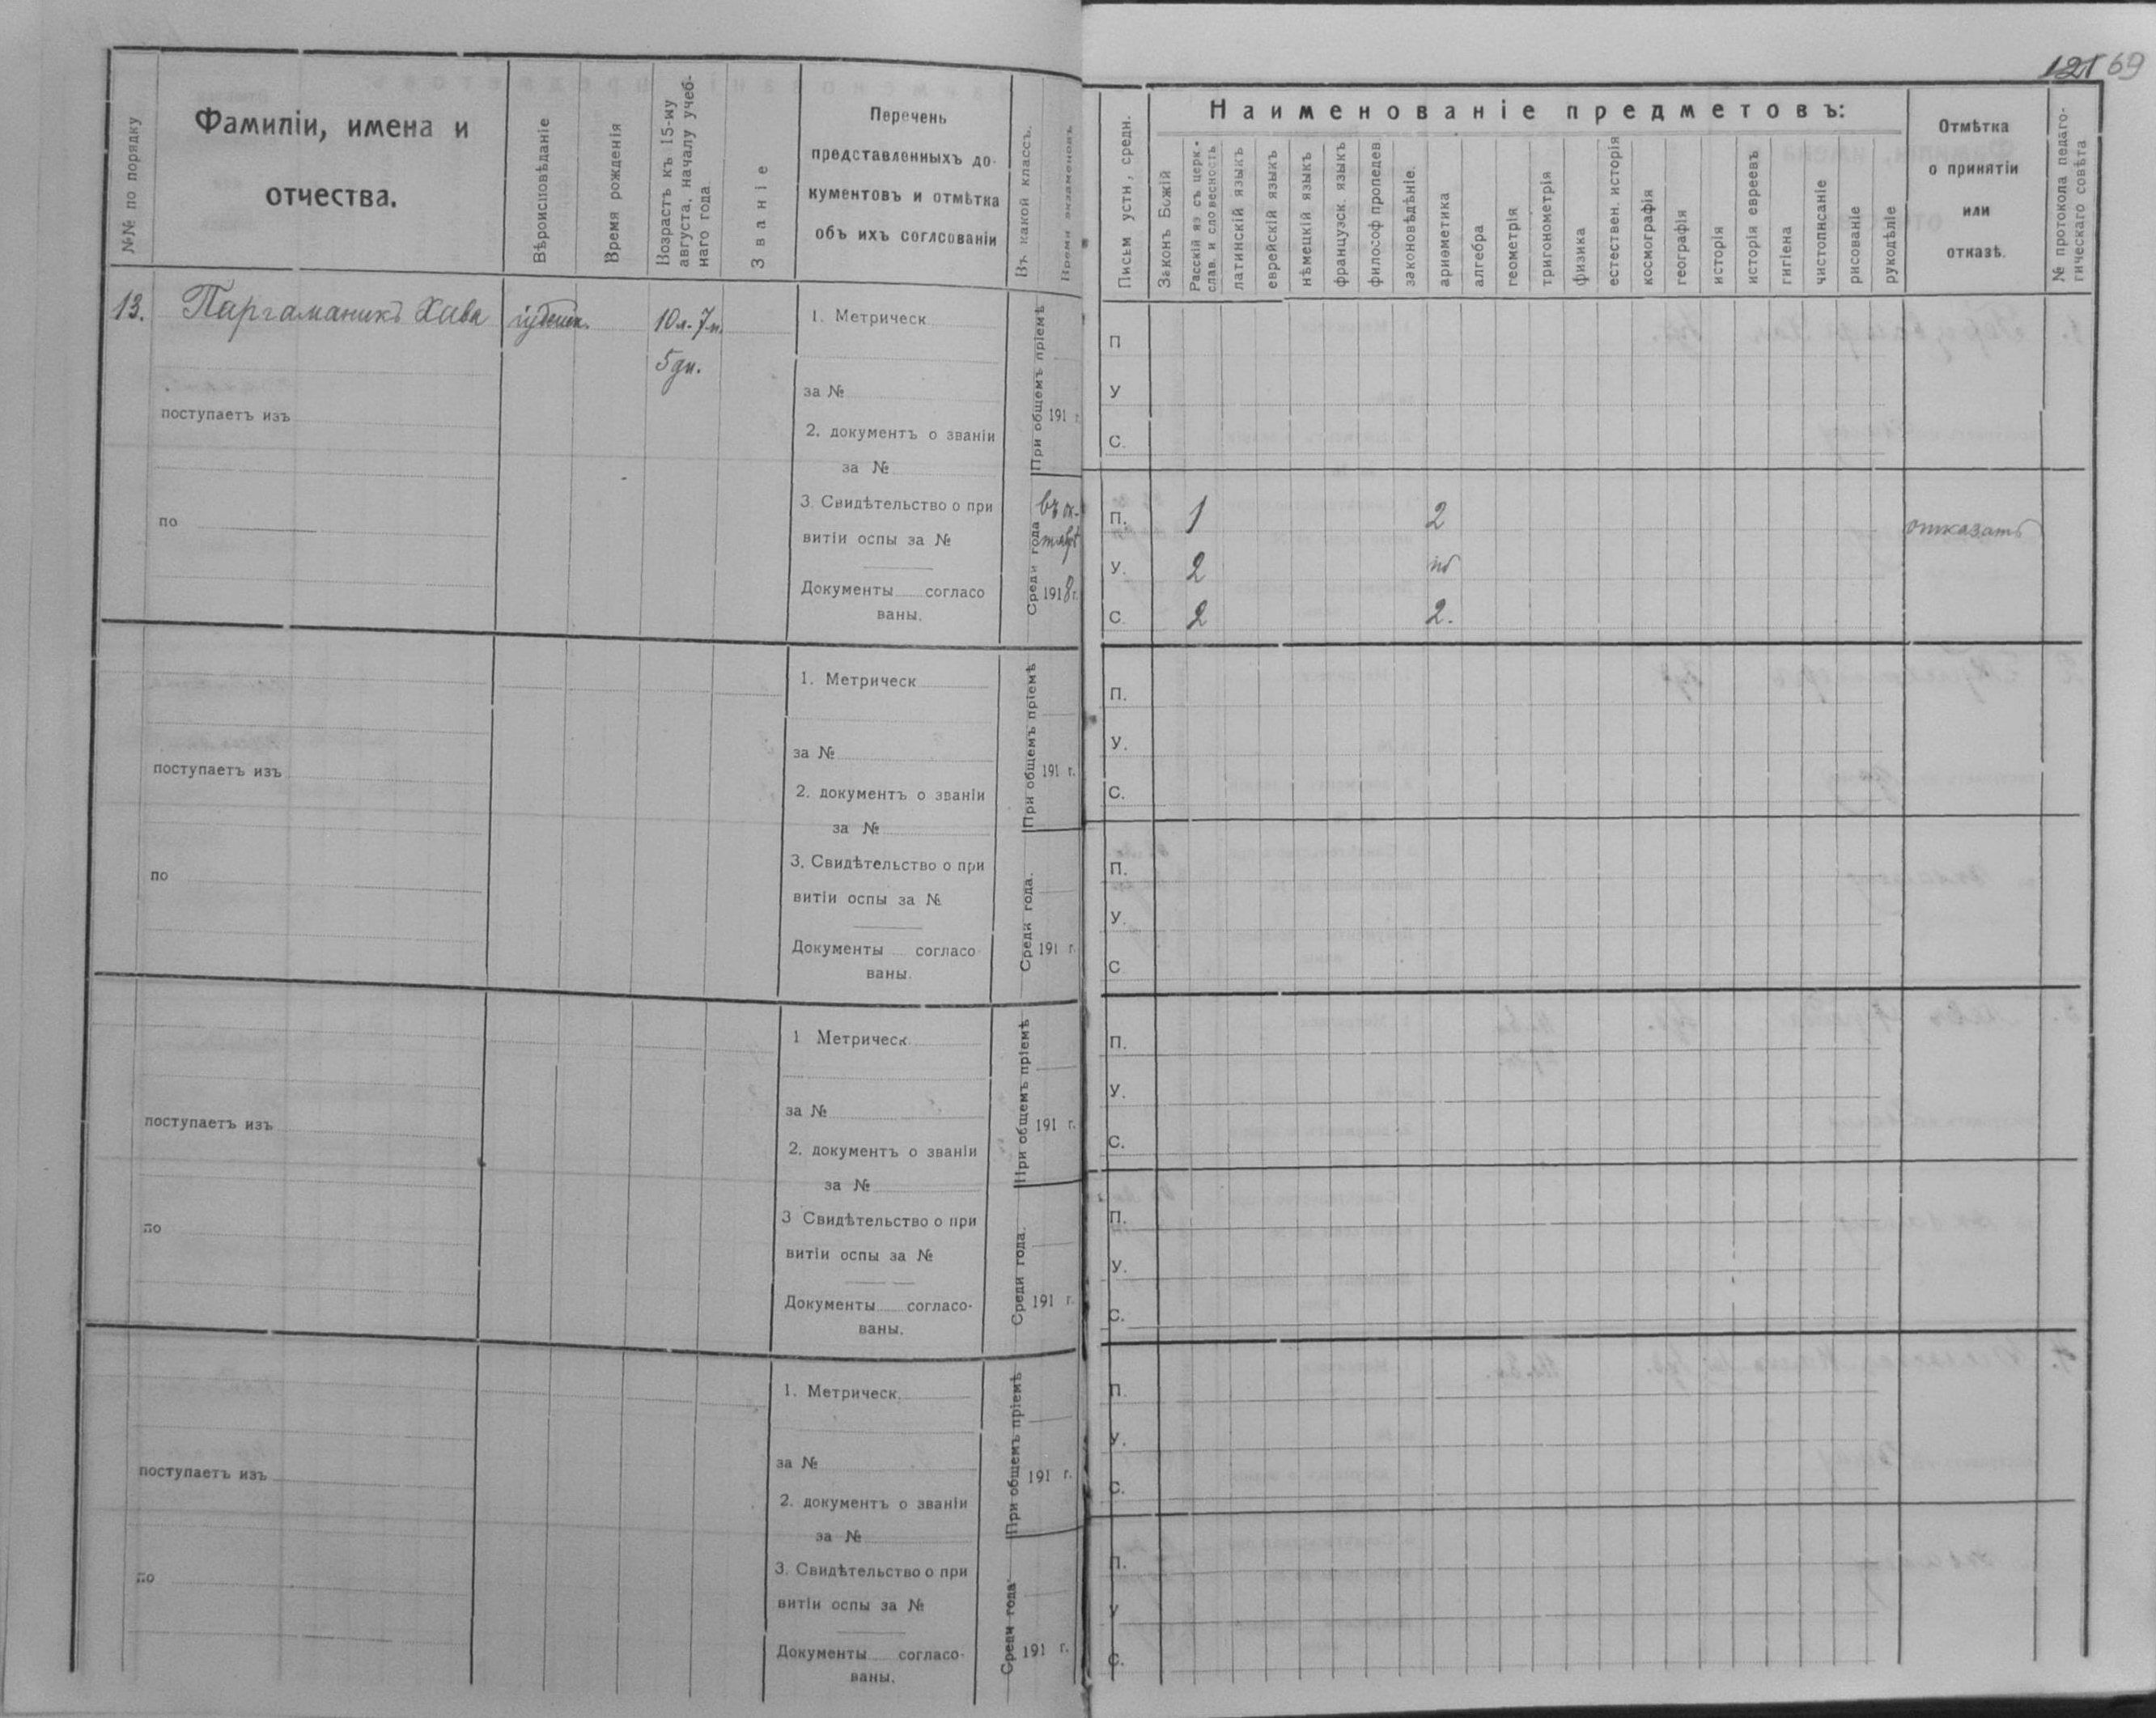 121 69
№№ по порядку
Фамиліи, имена и
отчества.
Вѣроисповѣданіе
Время рожденія
Возрастъ къ 15-му
августа, началу учеб-
наго года.
Званіе
Перечень
представленныхъ до-
кументовъ и отмѣтка
объ ихъ соглсованіи
Въ какой классъ.
Время экзаменовъ.
Письм устн, средн.
Наименованіе предметовъ:
Законъ Божій
Расскій яз съ церк.-
слав. и словесность
латинскій языкъ
еврейскій языкъ
нѣмецкій языкъ
француззк языкъ
философ пропедев
законовѣдѣніе.
ариѳметика
алгебра
геометрія
тригонометрія
физика
естествен. исторія
космографія
географія
исторія
исторія евреевъ
гигіена
чистописаніе
рисованіе
рукодѣліе
Отмѣтка
о принятіи
или
отказѣ.
№ протокола педаго-
гическаго совѣта
13. Пергаманикъ Хава іудейск. 10 л. 7 м.
5 дн.
1. Метрическ
за №
поступаетъ изъ
2. документъ о званіи
за №
3. Свидѣтельство о при
по
витіи оспы за №
Документы согласо
ваны.
При общемъ пріемѣ
191 г.
Среди года
въ ок-
тябрѣ
1918 г.
П
У
С.
П. 1 2 отказать
У. 2
С. 2 2.
1. Метрическ
за №
поступаетъ изъ
2. документъ о званіи
за №
3. Свидѣтельство о при
по
витіи оспы за №
Документы согласо
ваны.
При общемъ пріемѣ
191 г.
Среди года.
191 г.
П.
У.
С.
П.
У.
С
1 Метрическ
за №
поступаетъ изъ
2. документъ о званіи
за №
3 Свидѣтельство о при
по
витіи оспы за №
Документы согласо-
ваны.
При общемъ пріемѣ
191 г.
Среди года.
191 г.
П.
У.
С.
П.
У.
С.
1. Метрическ.
за №
поступаетъ изъ
2. документъ о званіи
за №
3. Свидѣтельство о при
по
витіи оспы за №
Документы согласо-
ваны.
При общемъ пріемѣ
191 г.
Среди года.
191 г.
П.
У.
С.
П.
У
С.